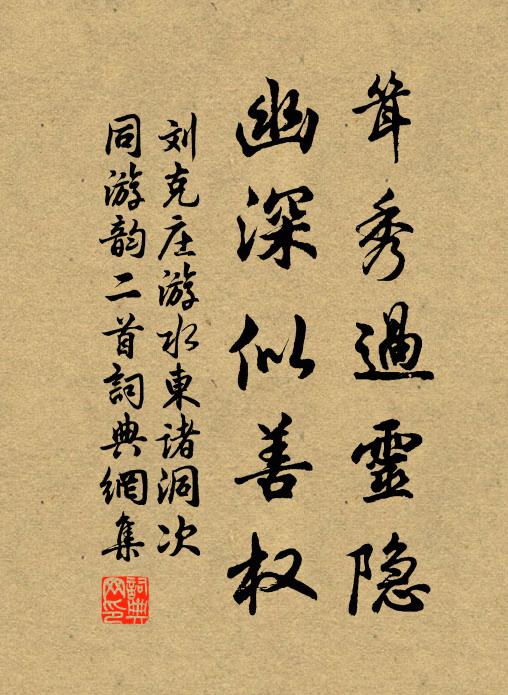 耸秀過靈隐
幽深似善权
刘克庄游水東诸洞次
同游韵二首詞典網集
詞典网印